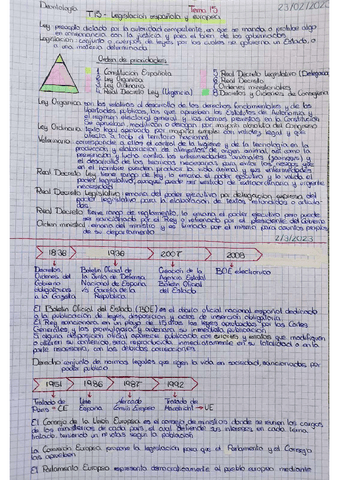 Deontología Tema 15 23/02/2023
T15 - Legislación española y europea
Ley: precepto dictado por la autoridad competente, en que se manda o prohíbe algo
en consonancia con la justicia y para el bien de los gobernados
Legislación: conjunto o cuerpo de leyes por las cuales se gobierna un Estado, o
a una materia determinada
Orden de prioridades:
1. Constitución Española
2. Ley Orgánica
3. Ley Ordinaria
4. Real Decreto Ley (Urgencia)
5. Real Decreto Legislativo (Delegado)
6. Real Decreto
7. Órdenes ministeriales
8. Decretos y Órdenes de Consejería
Ley Orgánica: son las relativas al desarrollo de los derechos fundamentales y de las
libertades públicas, las que aprueban los Estatutos de Autonomía y
el régimen electoral general y las demás previstas en la Constitución
Se aprueban, modifican o derogan por mayoría absoluta del Congreso
Ley Ordinaria: texto legal aprobado por mayoría simple con validez legal y que
afecta a todo el territorio nacional
Veterinario: corresponde a ellos el control de la higiene y de la tecnología en la
producción y elaboración de alimentos de origen animal, así como la
prevención y lucha contra las enfermedades animales (zoonosis) y
el desarrollo de las técnicas necesarias para evitar los riesgos que
en el hombre pueden producir la vida animal y sus enfermedades
Real Decreto Ley: tiene rango de ley, la emana el poder ejecutivo y la valida el
poder legislativo, aunque puede ser utilizado de extraordinaria y urgente
necesidad
Real Decreto Legislativo: emana del poder ejecutivo por delegación expresa del
poder legislativo para la elaboración de textos refundidos o articulados
Real Decreto: tiene rango de reglamento, lo emana el poder ejecutivo pero puede
ser sancionado por el Rey y refrendado por el presidente del Gobierno
Orden ministerial: emana del ministro y es firmada por el mismo para asuntos propios
de su departamento
2/3/2023
1836 1936 2007 2008
Decretos
Órdenes del
Gobierno
obligatorios
a la Gaceta
Boletín Oficial de
la Junta de Defensa
Nacional de España
vs Gaceta de la
República
Creación de la
Agencia Estatal
Boletín Oficial
del Estado
BOE electrónico
El Boletín Oficial del Estado (BOE) es el diario oficial nacional español dedicado
a la publicación de leyes, disposición y actos de inserción obligatoria.
El Rey sancionará en un plazo de 15 días las leyes aprobadas por las Cortes
Generales, y las promulgará y ordenará su inmediata publicación.
Si alguna disposición oficial es publicada con errores y erratas que modifiquen
o alteren su contenido, será reproducida inmediatamente en su totalidad o en la
parte necesaria, con las debidas correcciones.
Derecho: conjunto de normas legales que rigen la vida en sociedad, sancionadas por
poder público
1951 1986 1987 1992
Tratado de
París → CE
Une
España
Mercado
Único Europeo
Tratado de
Maastricht → UE
El Consejo de la Unión Europea es el consejo de ministros donde se reúnen los cargos
de los ministerios de cada país, el cual defiende sus intereses en cada tema
tratado, teniendo un nº votos según la población
La Comisión Europea propone la legislación para que el Parlamento y el Consejo
las aprueben
El Parlamento Europeo representa democráticamente al pueblo europeo mediante